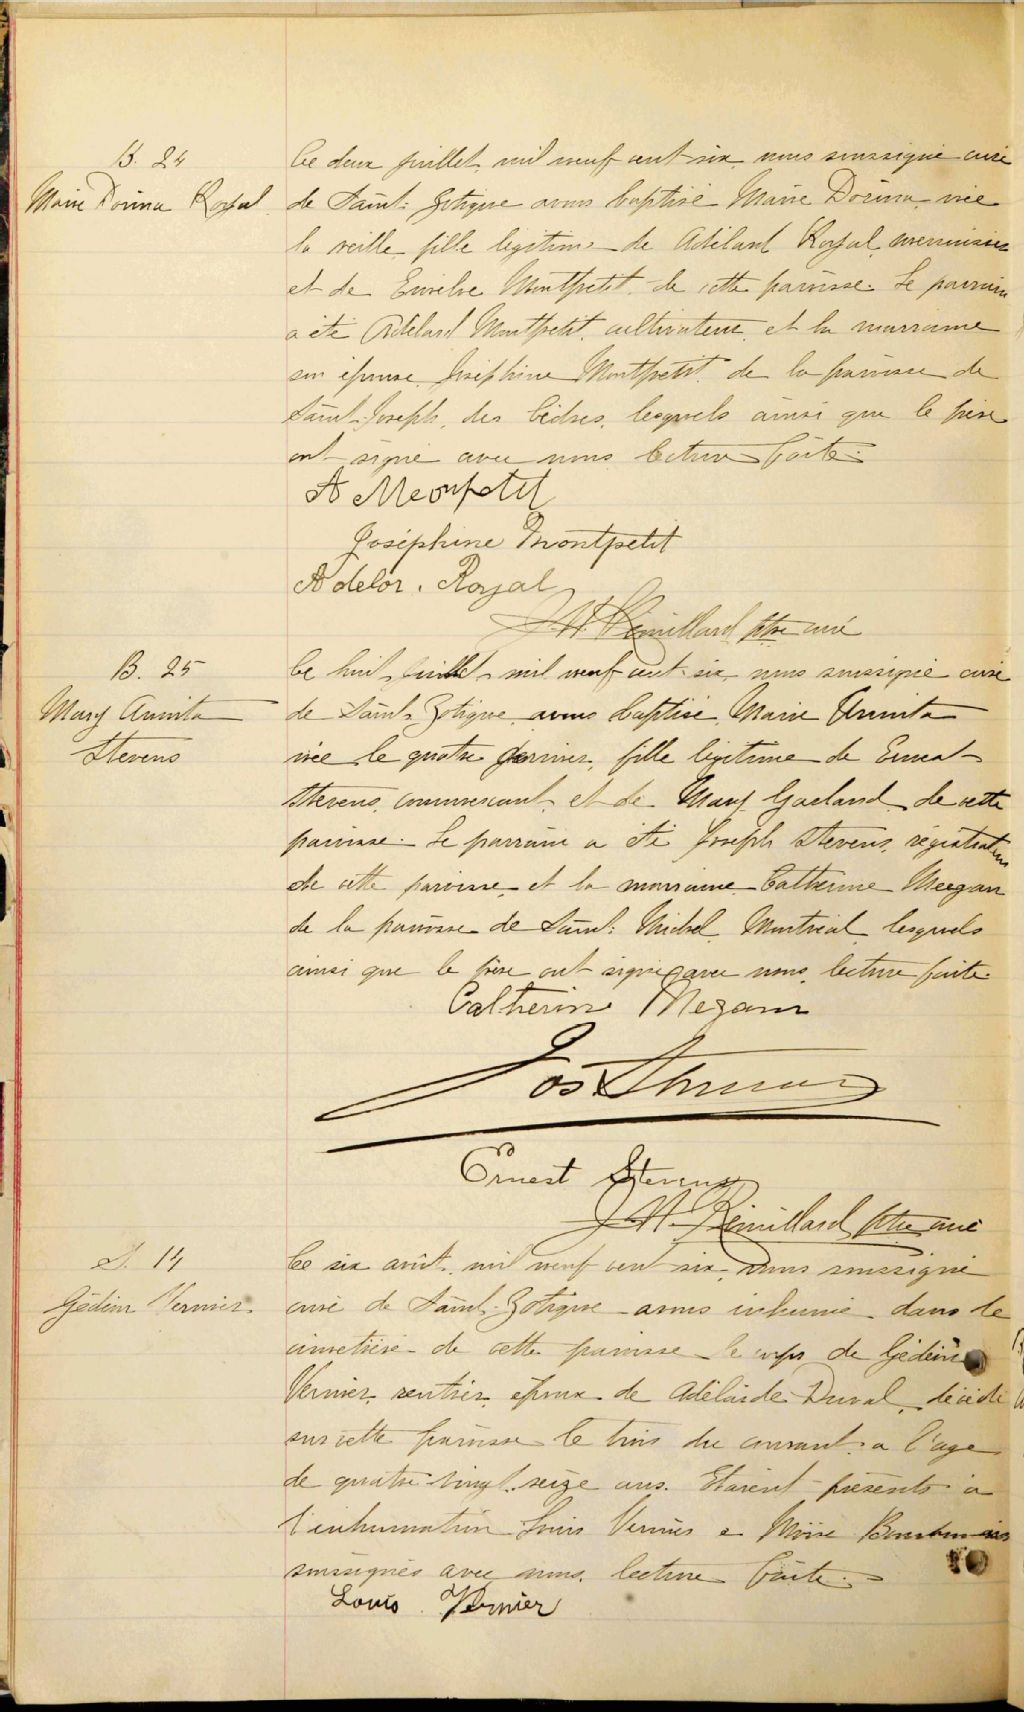 B. 24
Marie Dorina Royal
Ce deux juillet mil neuf cent six, nous soussigné curé
de Saint-Zotique avons baptisé Marie Dorina, née
la veille fille légitime de Adélard Royal, menuisier
et de Montpetit de cette paroisse. Le parrain
a été Adélard Montpetit, cultivateur, et la marraine
son épouse, Joséphine Montpetit de la paroisse de
Saint-Joseph, des Cèdres, lesquels ainsi que le père
ont signé avec nous. Lecture faite.
A Meonpetit
Joséphine Montpetit
Adelor. Royal
J. A. Rémillard ptre curé
B. 25
Mary Annita
Stevens
Ce huit juillet mil neuf cent six, nous soussigné curé
de Saint-Zotique avons baptisé Marie Annita
née le quatre dernier, fille légitime de Ernest
Stevens, commerçant et de Mary Gaeland de cette
paroisse. Le parrain a été Joseph Stevens, régistrateur
de cette paroisse et la marraine Catherine Meegan
de la paroisse de Saint-Michel, Montréal, lesquels
ainsi que le père ont signé avec nous, lecture faite.
Catherine Megann
Jos. Stevens
Ernest Stevens
J. A. Rémillard ptre curé
S. 14
Gédéon Vernier.
Ce six août, mil neuf cent six, nous soussigné
curé de Saint-Zotique avons inhumé dans le
cimetière de cette paroisse le corps de Gédéon
Vernier, rentier, époux de Adélaïde Duval, décédé
sur cette paroisse le trois du courant à l'age
de quatre-vingt-seize ans. Étaient présents à
l'inhumation Louis Vernier & Moïse
soussignés avec nous. lecture faite.
Louis Vernier